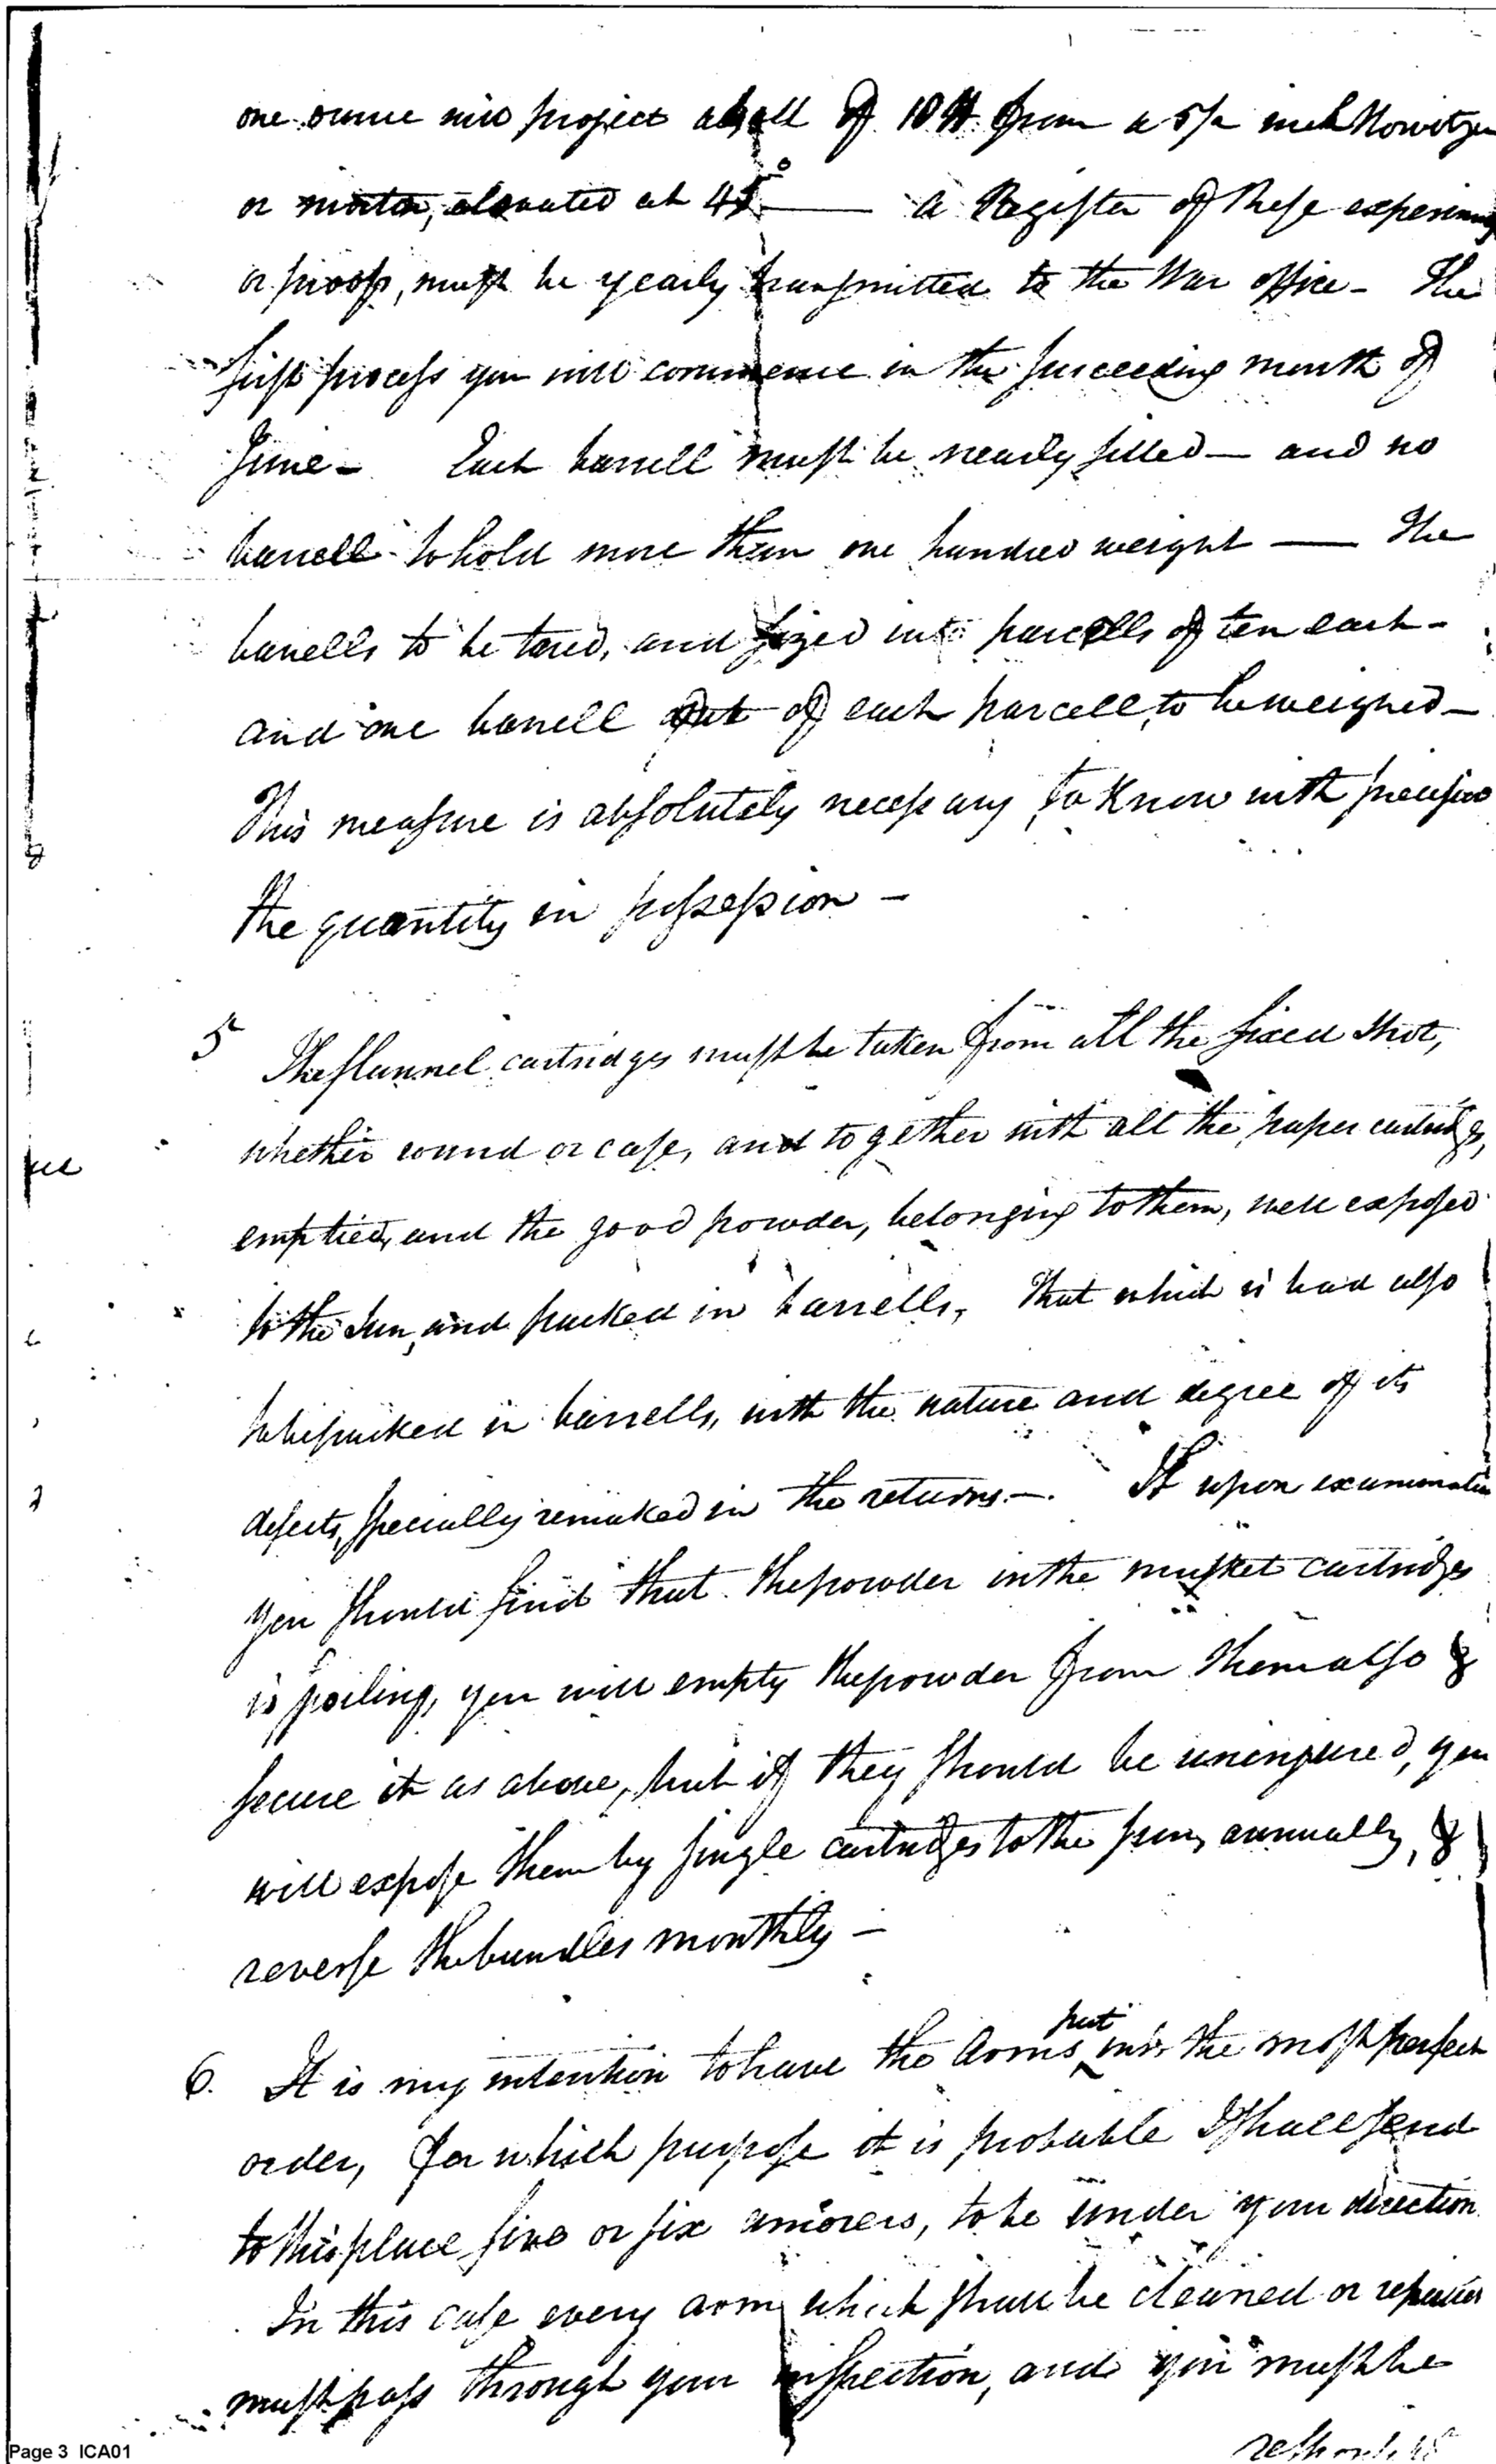 one ounce will project a shell of 18 lb from a 5½ inch Howitzer
or mortar, elevated at 45° — a Register of these experiments
or proofs, must be yearly transmitted to the War office - The
first process you will commence in the succeeding month of
June - Each barrell must be nearly filled — and no
barrell to hold more than one hundred weight — The
barells to be tared, and sized into parcells of ten each -
and one barell out of each parcell, to be weighed —
This measure is absolutely necessary to know with precision
the quantity in possession -
5 The flannel cartridges must be taken from all the fixed shot,
whether round or case, and together with all the paper cartridges,
emptied, and the good powder, belonging to them, well exposed
to the Sun, and packed in barrells, That which is bad also
to be packed in barrells, with the nature and degree of its
defects, specially remarked in the returns. — If upon examination
you should find that the powder in the musket cartridges
is spoiling, you will empty the powder from them also &
secure it as above, but if they should be uninjured, you
will expose them by single cartridges to the sun, annually, &
reverse the bundles monthly —
6. It is my intention to have the Arms put into the most perfect
order, for which purpose it is probable I shall send
to this place five or six armorers, to be under your direction
In this case every arm, which shall be cleaned or repaired
must pass through your inspection, and you must be
Page 3 ICA01